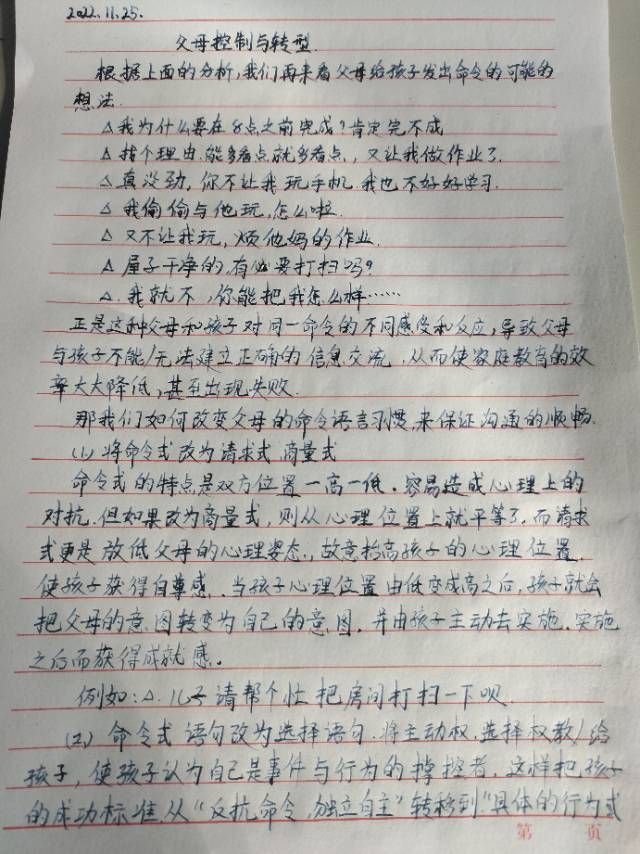 2022.11.25.
父母控制与转型.
根据上面的分析,我们再来看父母给孩子发出命令的可能的
想法.
△我为什么要在8点之前完成?肯定完不成
△找个理由.能多看点就多看点,又让我做作业了.
△真没劲,你不让我玩手机.我也不好好学习.
△我偷偷与他玩,怎么啦.
△又不让我玩,烦他妈的作业.
△屋子干净的,有必要打扫吗?
△.我就不,你能把我怎么样……
正是这种父母和孩子对同一命令的不同感受和反应,导致父母
与孩子不能/无法建立正确的信息交流.从而使家庭教育的效
率大大降低,甚至出现失败.
那我们如何改变父母的命令语言习惯,来保证沟通的顺畅.
(1)将命令式改为请求式.商量式
命令式的特点是双方位置一高一低.容易造成心理上的
对抗.但如果改为商量式,则从心理位置上就平等了.而请求
式更是放低父母的心理姿态.,故意抬高孩子的心理位置.
使孩子获得自尊感..当孩子心理位置由低变成高之后,孩子就会
把父母的意图转变为自己的意图.并由孩子主动去实施.实施
之后而获得成就感。
例如:△.儿子请帮个忙把房间打扫一下呗.
(2)命令式语句改为选择语句.将主动权.选择权教/给
孩子,使孩子认为自己是事件与行为的掌控者.这样把孩子
的成功标准从“反抗命令,独立自主”转移到“具体的行为式
第 页